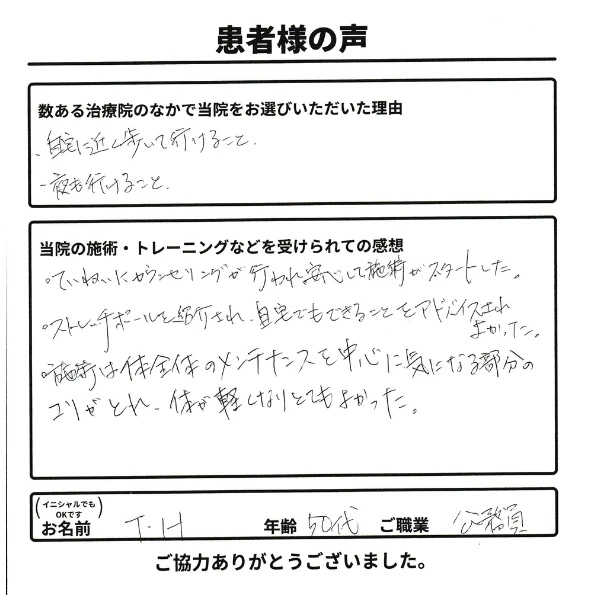 患者様の声
数ある治療院のなかで当院をお選びいただいた理由
・自宅に近く歩いて行けること。
・夜も行けること。
当院の施術・トレーニングなどを受けられての感想
・ていねいにカウンセリングが行われ安心して施術がスタートした。
・ストレッチポールを紹介され、自宅でもできることをアドバイスされ
よかった。
・施術は体全体のメンテナンスを中心に気になる部分の
コリがとれ、体が軽くなりとてもよかった。
(イニシャルでも
OKです)
お名前 T・H 年齢 50代 ご職業 公務員
ご協力ありがとうございました。